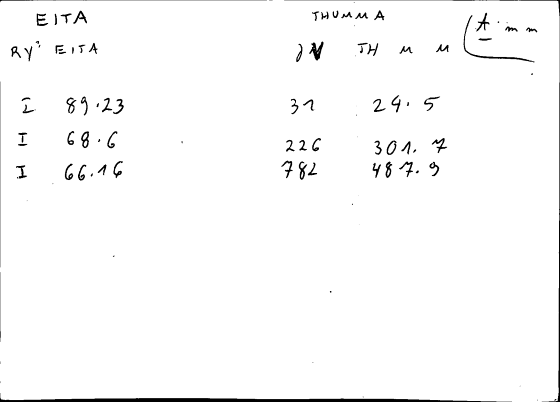 EITA THUMMA A. m m
RY: EITA TH M M
I 89.23 31 24. 5
I 68.6 226 301. 7
I 66.16 782 487.9